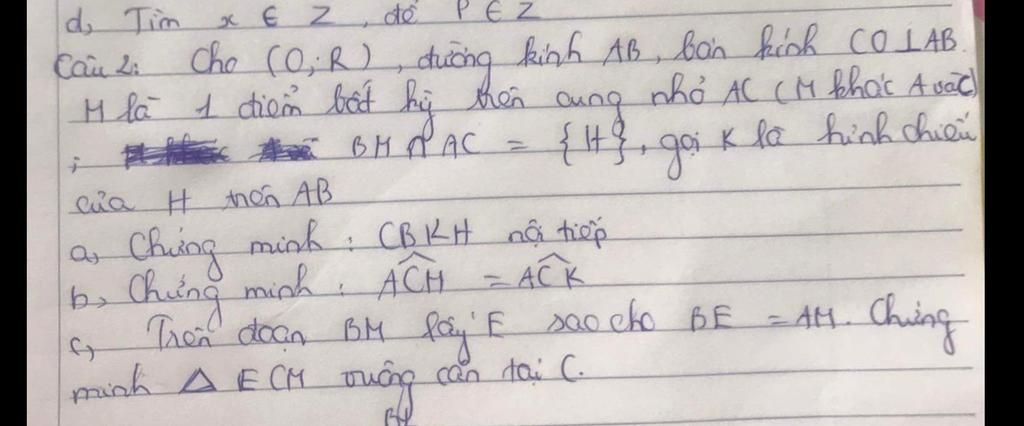 d, Tìm x ∈ Z, để P ∈ Z
Câu 2: Cho (O;R), đường kính AB, bán kính CO⊥AB.
M là 1 điểm bất kỳ trên cung nhỏ AC (M khác A và C)
; BM ∩ AC = {H}, gọi K là hình chiếu
của H trên AB
a, Chứng minh: CBKH nội tiếp
b, Chứng minh: \widehat{ACM} = \widehat{ACK}
c, Trên đoạn BM lấy E sao cho BE = AM. Chứng
minh △ ECM vuông cân tại C.